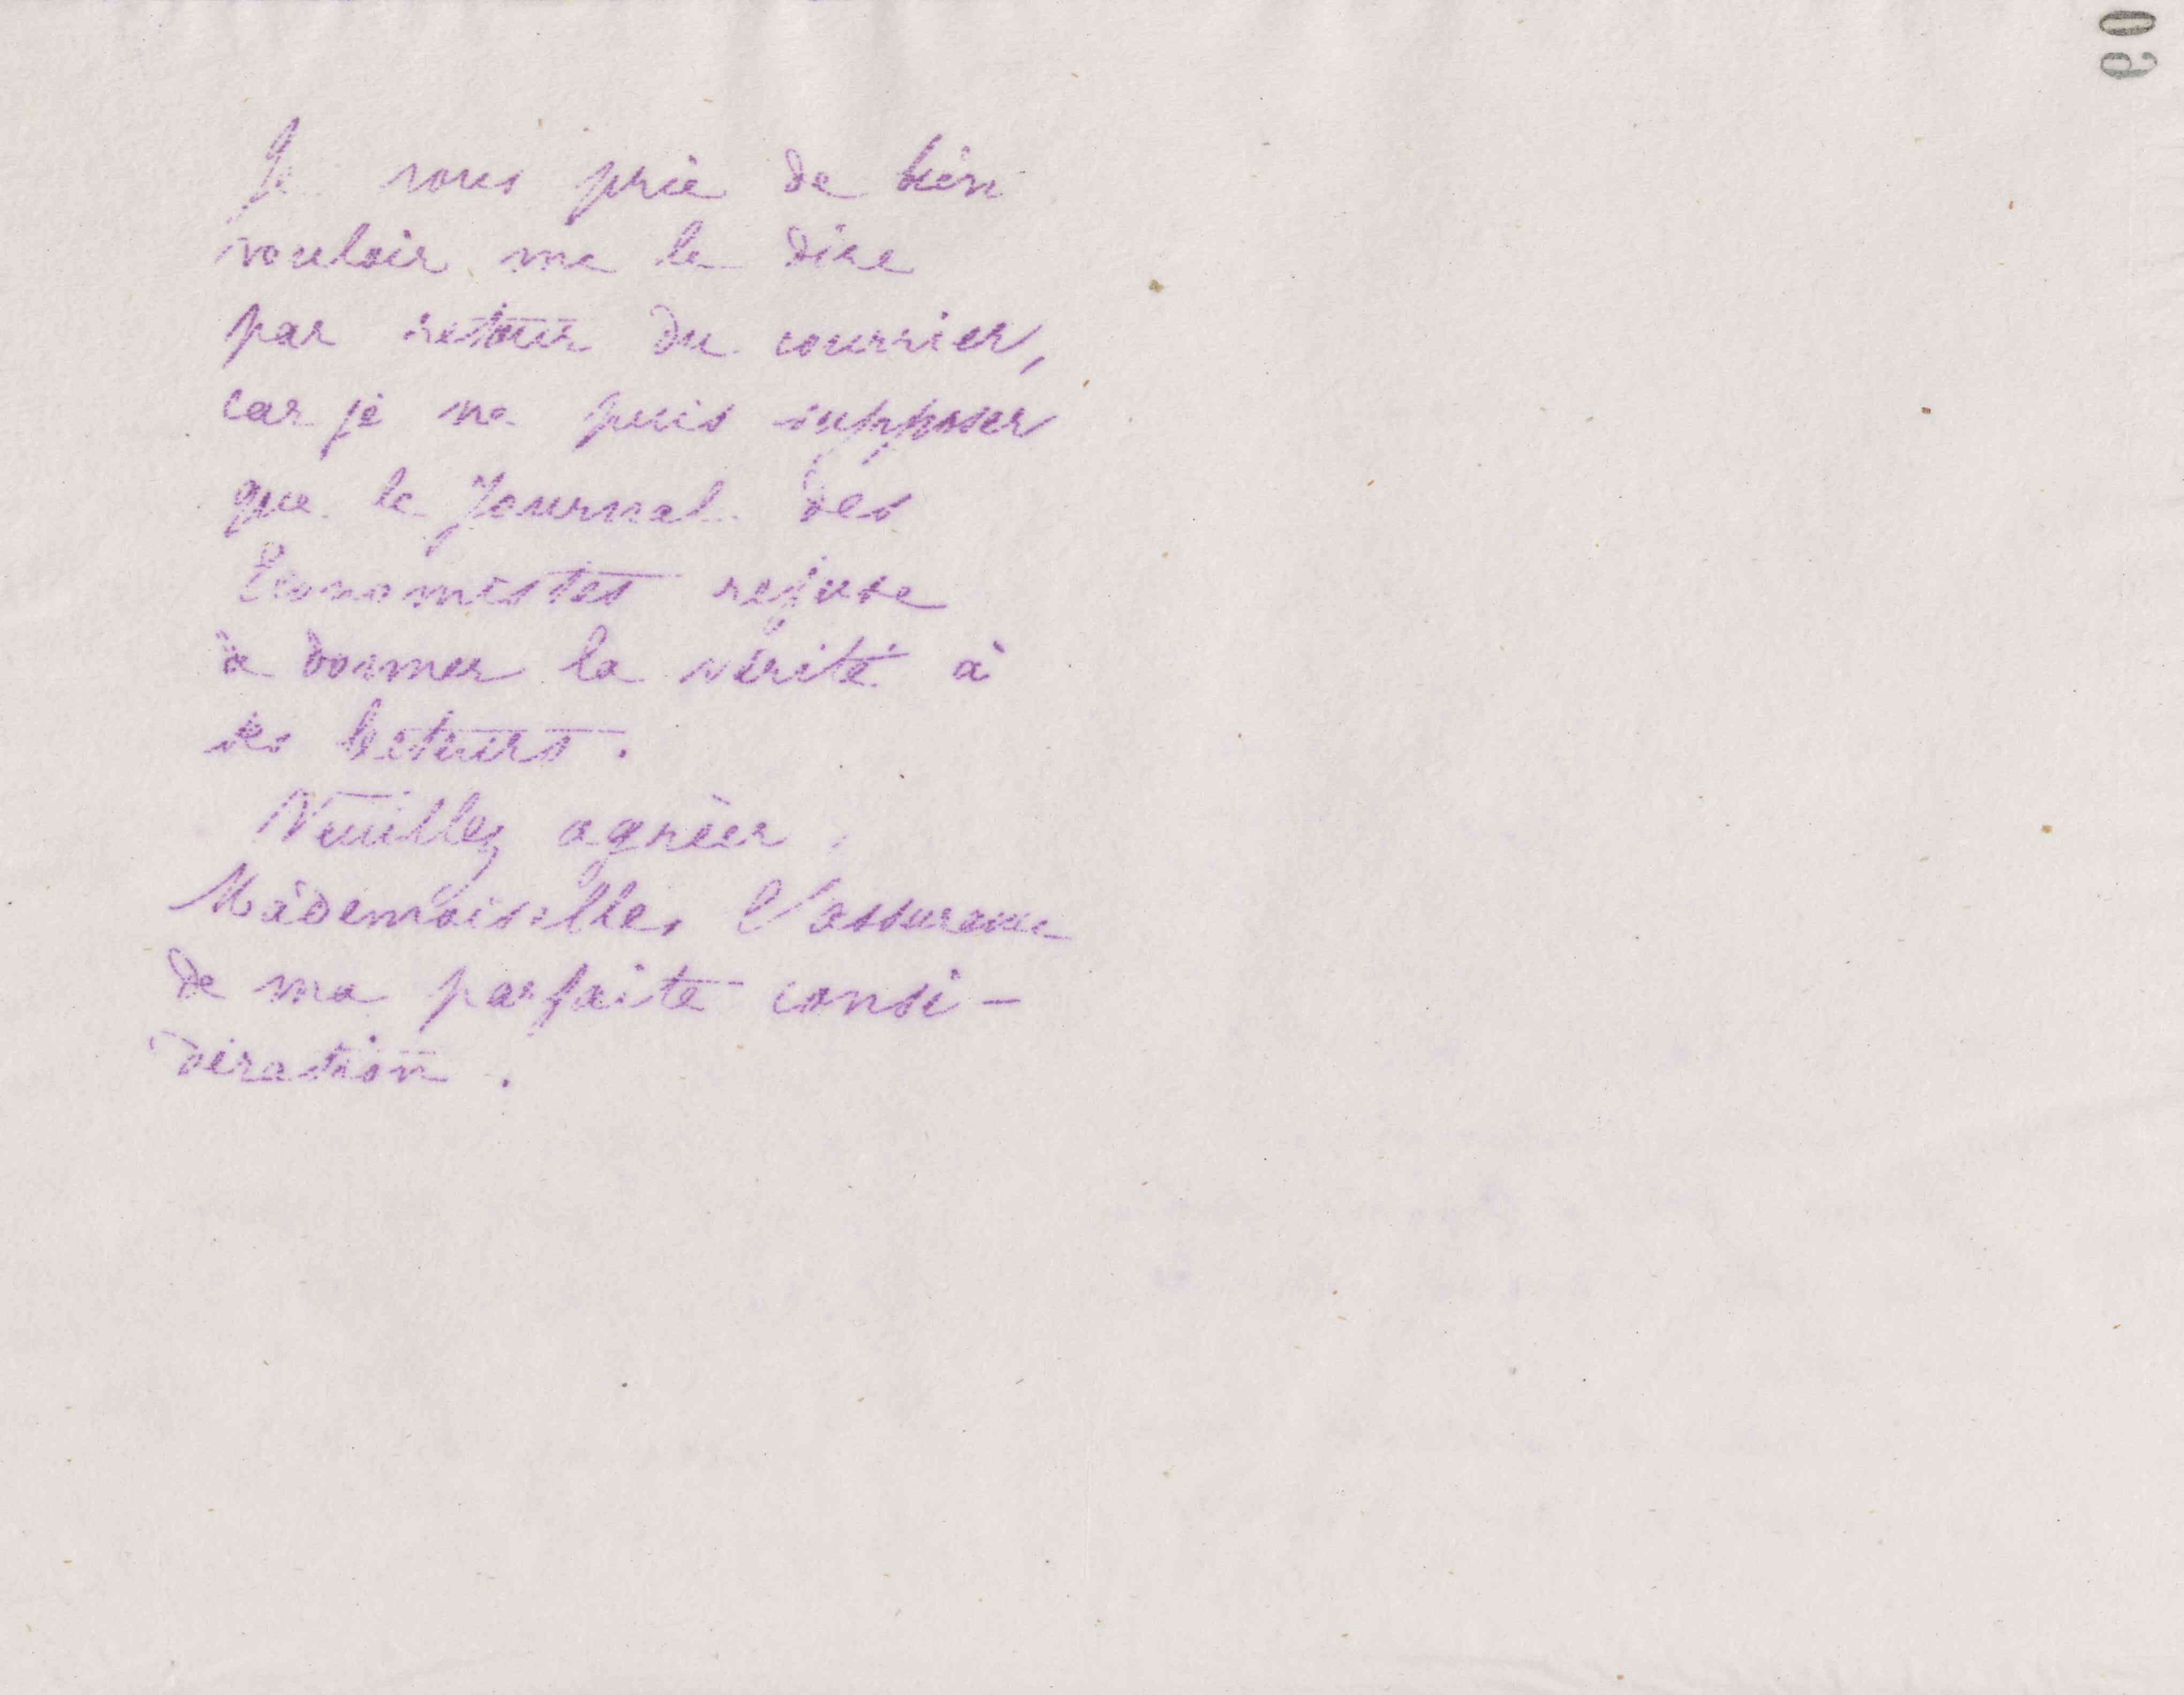 Je vous prie de bien
vouloir me le dire
par retour du courrier,
car je ne puis supposer
que le Journal des
Economistes refuse
à donner la vérité à
ses lecteurs.
Veuillez agréer,
Mademoiselle, l'assurance
de ma parfaite consi-
dération.
60